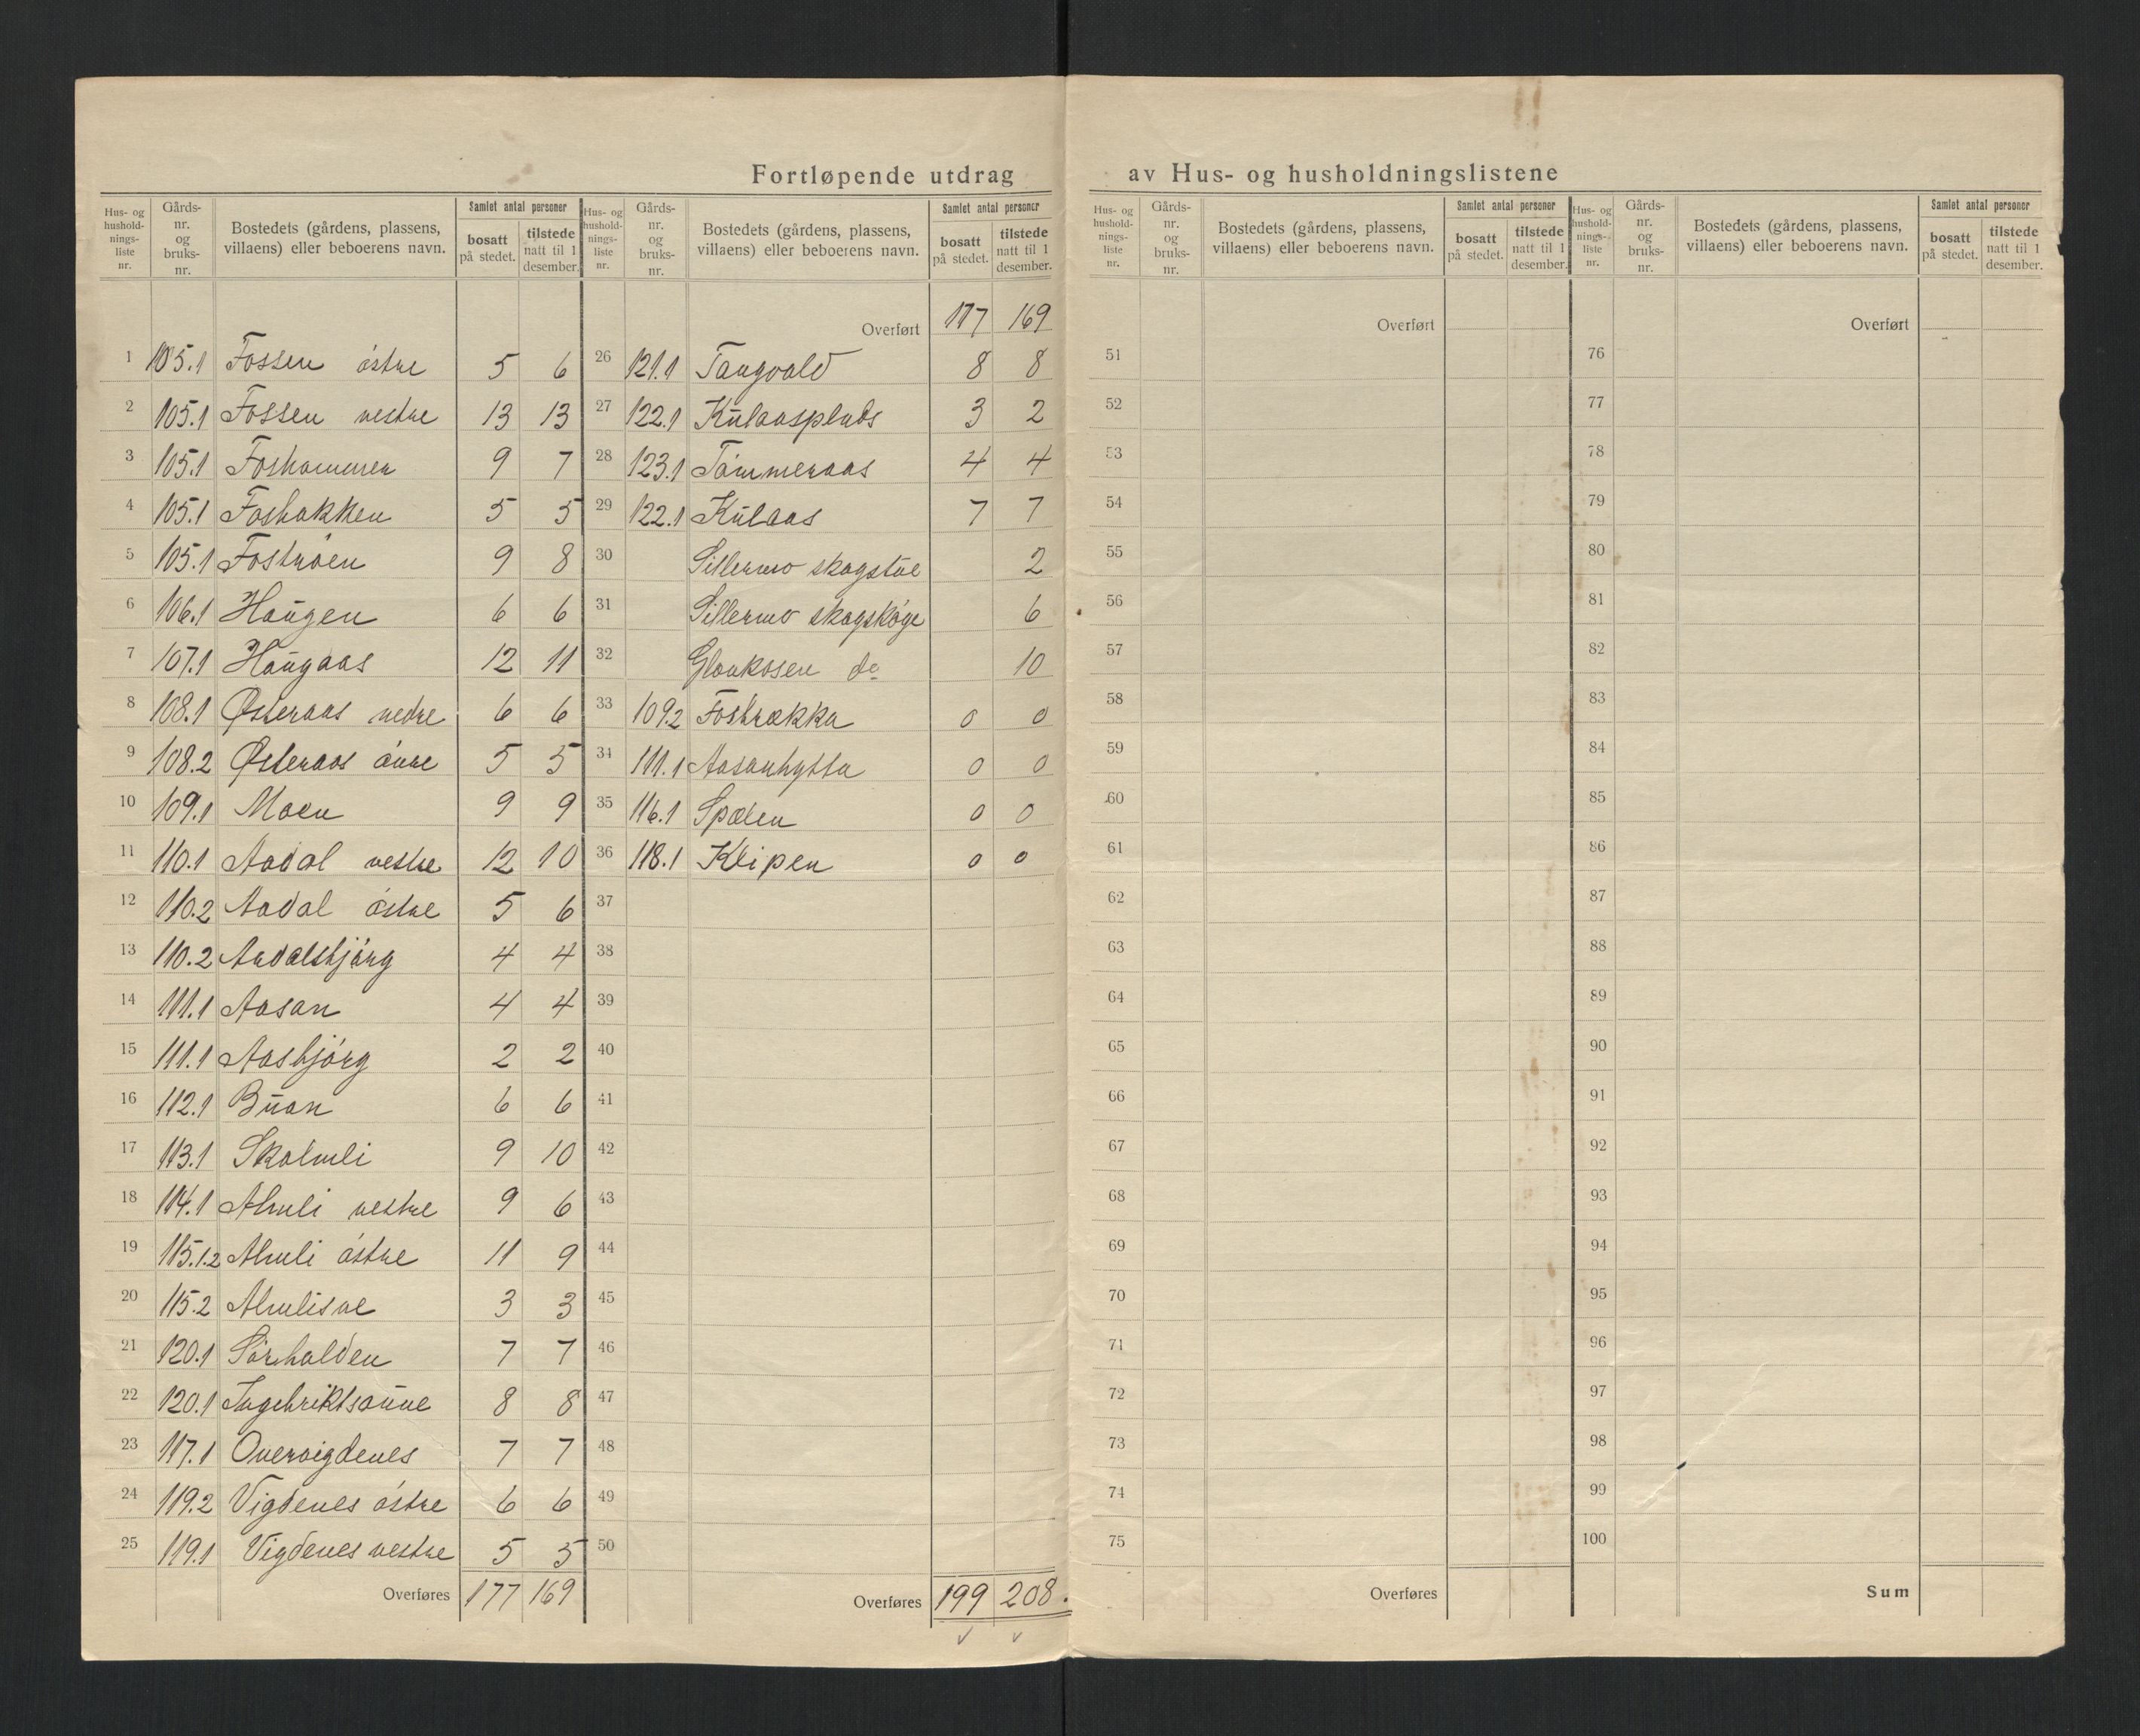 Fortløpende utdrag av Hus- og husholdningslistene
Hus- og hushold-nings-liste nr. Gårds-nr. og bruks-nr. Bostedets (gårdens, plassens, villaens) eller beboerens navn. Samlet antal personer bosatt på stedet. tilstede natt til 1 desember.
1 105.1 Fossen östre 5 6
2 105.1 Fossen vestre 13 13
3 105.1 Foshammer 9 7
4 105.1 Fosbakken 5 5
5 105.1 Fostrøen 9 8
6 106.1 Haugen 6 6
7 107.1 Haugaas 12 11
8 108.1 Østeraas nedre 6 6
9 108.2 Østeraas övre 5 5
10 109.1 Moen 9 9
11 110.1 Aadal vestre 12 10
12 110.2 Aadal östre 5 6
13 110.2 Aadalsbjörg 4 4
14 111.1 Aasan 4 4
15 111.1 Aasbjörg 2 2
16 112.1 Buan 6 6
17 113.1 Skalmli 9 10
18 114.1 Almli vestre 9 6
19 115.1.2 Almli östre 11 9
20 115.2 Almlisve 3 3
21 120.1 Sörhalden 7 7
22 120.1 Ingebriktsaune 8 8
23 117.1 Overvigdenes 7 7
24 119.2 Vigdenes östre 6 6
25 119.1 Vigdenes vestre 5 5
Overføres 177 169
Hus- og hushold-nings-liste nr. Gårds-nr. og bruks-nr. Bostedets (gårdens, plassens, villaens) eller beboerens navn. Samlet antal personer bosatt på stedet. tilstede natt til 1 desember.
Overført 177 169
26 121.1 Tangvald 8 8
27 122.1 Kulaasplads 3 2
28 123.1 Tömmeraas 4 4
29 122.1 Kulaas 7 7
30 Sillermo skogstue 2
31 Sillermo skogskoje 6
32 Glaukosen do 10
33 109.2 Fosbrække 0 0
34 111.1 Aasanhytta 0 0
35 116.1 Spælen 0 0
36 118.1 Kleipen 0 0
37
38
39
40
41
42
43
44
45
46
47
48
49
50
Overføres 199 208.
Hus- og hushold-nings-liste nr. Gårds-nr. og bruks-nr. Bostedets (gårdens, plassens, villaens) eller beboerens navn. Samlet antal personer bosatt på stedet. tilstede natt til 1 desember.
Overført
51
52
53
54
55
56
57
58
59
60
61
62
63
64
65
66
67
68
69
70
71
72
73
74
75
Overføres
Hus- og hushold-nings-liste nr. Gårds-nr. og bruks-nr. Bostedets (gårdens, plassens, villaens) eller beboerens navn. Samlet antal personer bosatt på stedet. tilstede natt til 1 desember.
Overført
76
77
78
79
80
81
82
83
84
85
86
87
88
89
90
91
92
93
94
95
96
97
98
99
100
Sum